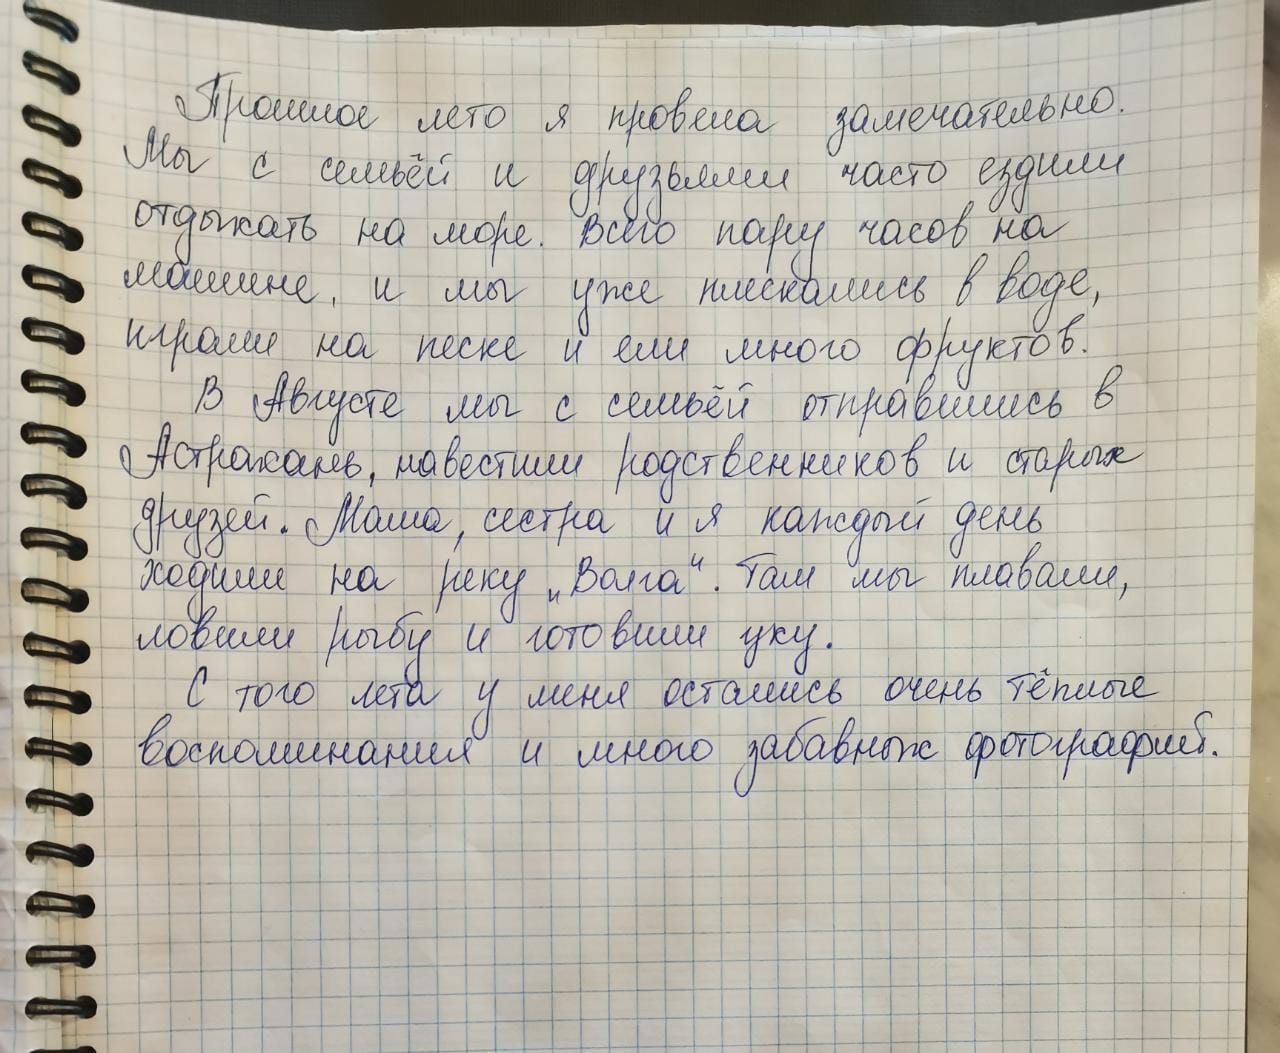 Прошлое лето я провела замечательно.
Мы с семьёй и друзьями часто ездили
отдыхать на море. Всего пару часов на
машине, и мы уже плескались в воде,
играли на песке и ели много фруктов.
В Августе мы с семьёй отправились в
Астрахань, навестили родственников и старых
друзей. Мама, сестра и я каждый день
ходили на реку „Волга“. Там мы плавали,
ловили рыбу и готовили уху.
С того лета у меня остались очень тёплые
воспоминания и много забавных фотографий.